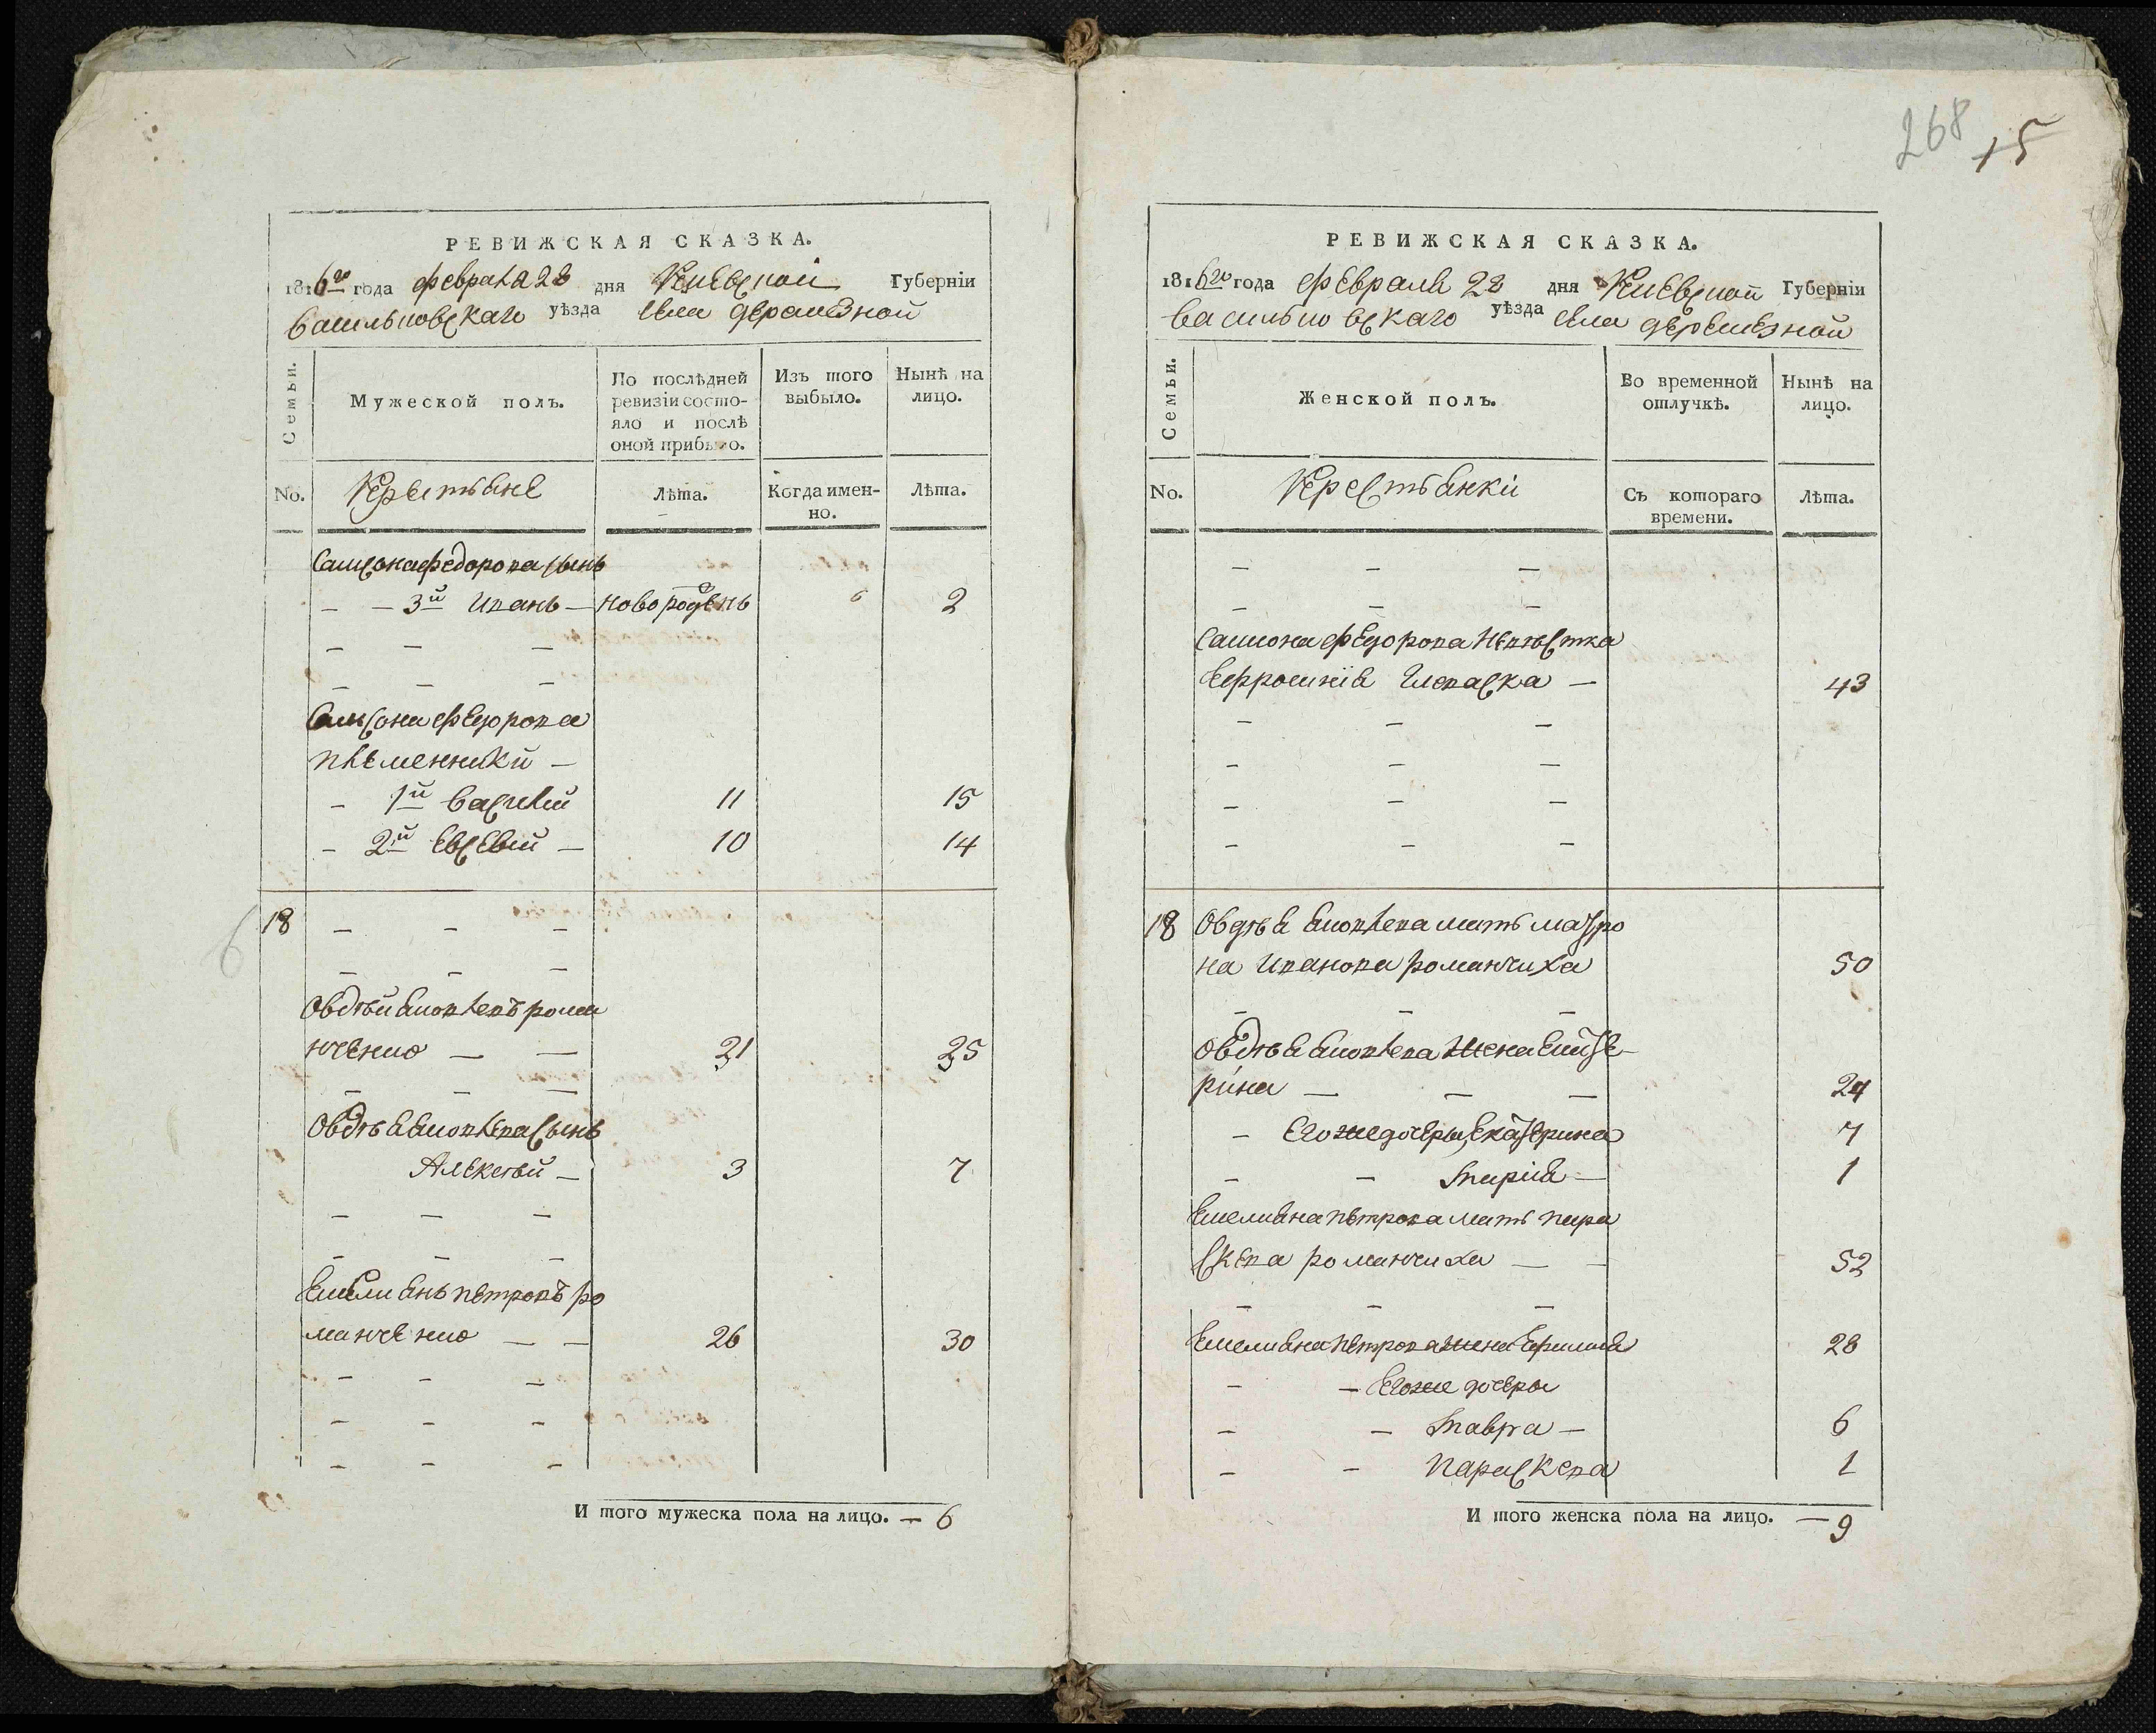 268 15
РЕВИЖСКАЯ СКАЗКА.
1816го года февраля 28 дня Киевской Губерніи
васильковскаго уѣзда села деремезной
Семьи.
Мужеской полъ.
По послѣдней ревизіи состояло и послѣ оной прибыло.
Изъ того выбыло.
Нынѣ на лицо.
No.
Крестьяне
Лѣта.
Когда именно.
Лѣта.
Самсона федорова сынъ
— — 3й Иванъ — новорожденъ 2
Самсона федорова
племенники —
— 1й василий 11 15
— 2й Евсевий — 10 14
6
18 — — —
Овдѣй яковлевъ рома
нченко — — 21 25
Овдѣя яковлева сынъ
Алексѣй — 3 7
Емелиянъ петровъ ро
манченко — — 26 30
И того мужеска пола на лицо. — 6
РЕВИЖСКАЯ СКАЗКА.
1816го года февраля 28 дня Киевской Губерніи
васильковскаго уѣзда села деремезной
Семьи.
Женской полъ.
Во временной отлучкѣ.
Нынѣ на лицо.
No.
Крестьянки
Съ котораго времени.
Лѣта.
Самсона федорова невѣстка
Ефросинія 43
18 Овдѣя яковлева мать матро
на иванова романчиха 50
Овдѣя яковлева жена
рина — — — 24
— Егоже дочеры, Екатерина 7
— — Марія — 1
Емелияна петрова мать пара
скева романчиха — — 52
Емелияна петрова жена 28
— — Егоже дочеры
— — Мавра — 6
— — параскева 1
И того женска пола на лицо. — 9